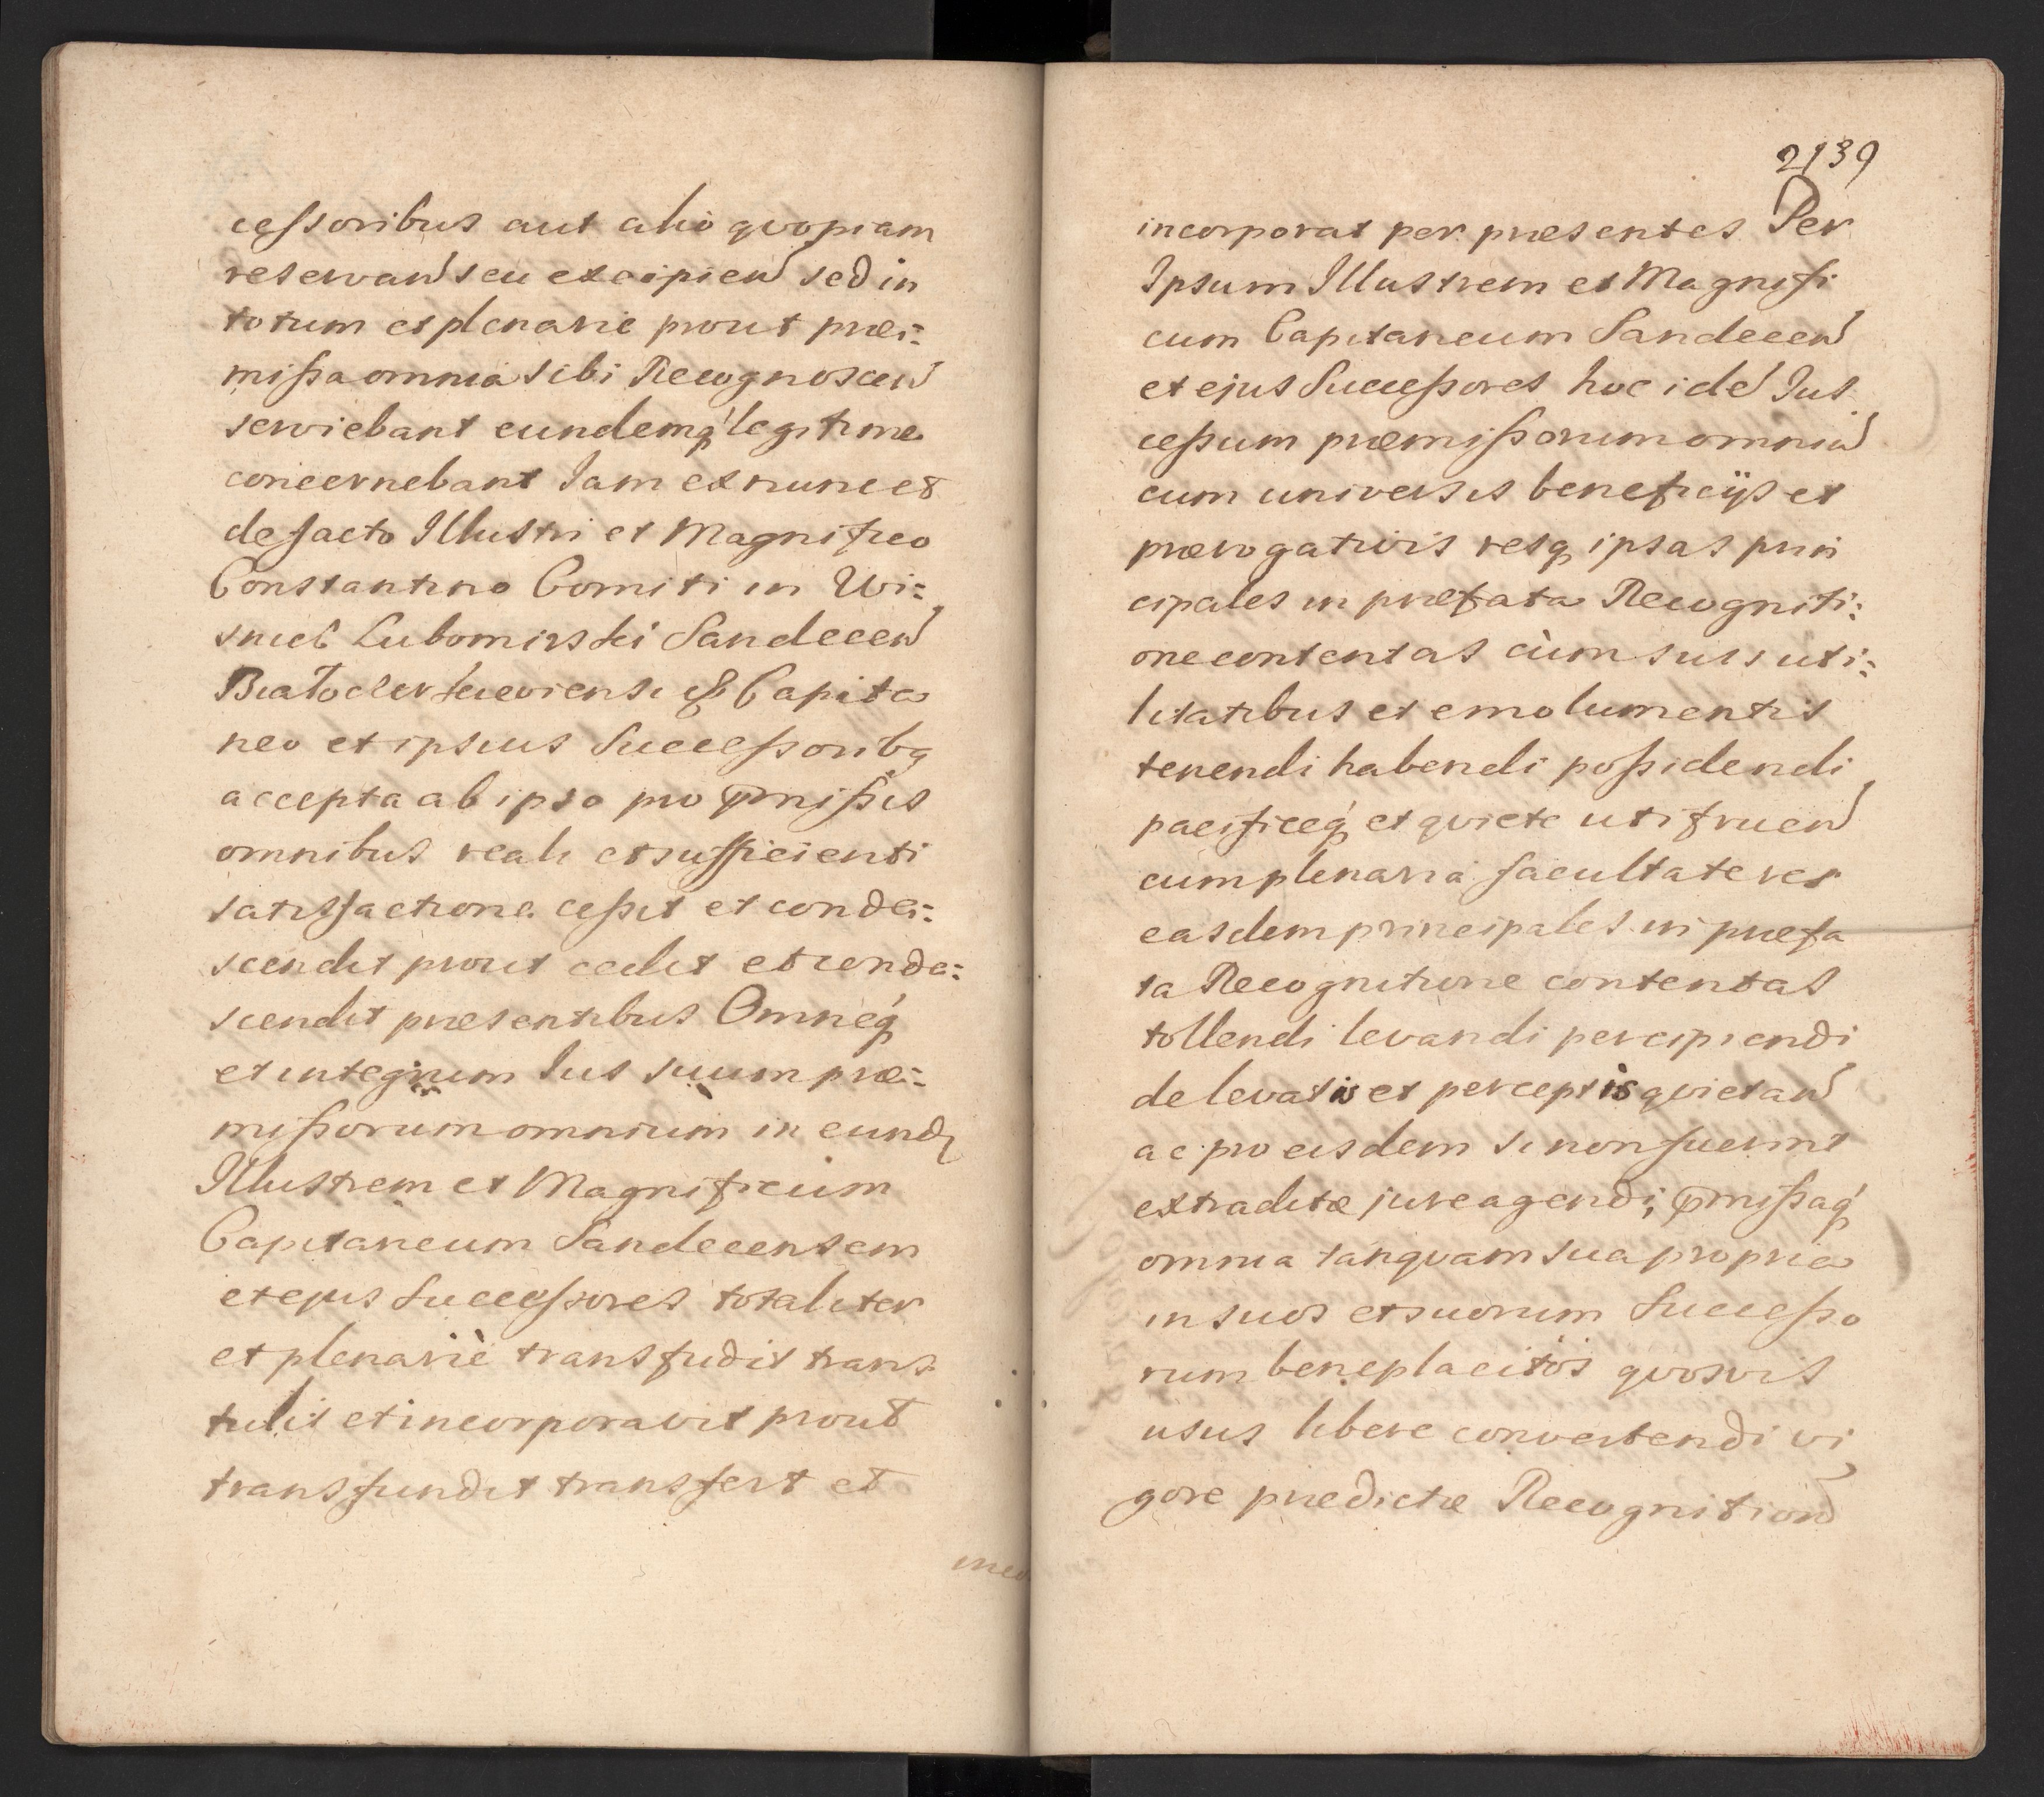 cessoribus aut alio qvopiam
reservan seu excipien sed in
totum et plenarie prout præ-
missa omnia sibi Recognoscen
serviebant eundemq legitime
concernebant Jam ex nunc et
de facto Illustri et Magnifico
Constantino Comiti in Wi-
snicz Lubomirski Sandecen
Białocerkieviensi &c Capita
neo et ipsius Successorib9
accepta ab ipso pro pmissis
omnibus reali et sufficienti
satisfactione cessit et conde-
scendit prout cedit et conde-
scendit præsentibus Omneq
et integrum Jus suum præ-
missorum omnium in eund
Illustrem et Magnificum
Capitaneum Sandecensem
et ejus Successores totaliter
et plenariè transfudit trans
tulit et incorporavit prout
transfundit transfert et
inco
2139
incorporat per præsentes Per
Ipsum Illustrem et Magnifi
cum Capitaneum Sandecen
et ejus Successores hoc ide Jus
cessum præmissorum omniu
cum universis beneficijs et
prærogativis resq ipsas prin
cipales in præfata Recogniti-
one contentas cùm suis uti-
litatibus et emolumentis
tenendi habendi possidendi
pacificeq et qviete uti fruen
cum plenaria facultate res
easdem principales in præfa
ta Recognitione contentas
tollendi levandi percipiendi
de levatis et perceptis qvietan
ac pro eisdem si non fuerint
extraditæ jure agendi, pmissaq
omnia tanqvam sua propria
in suos et suorum Successo
rum beneplacitos qvosvis
usus libere convertendi vi
gore prædictæ Recognition